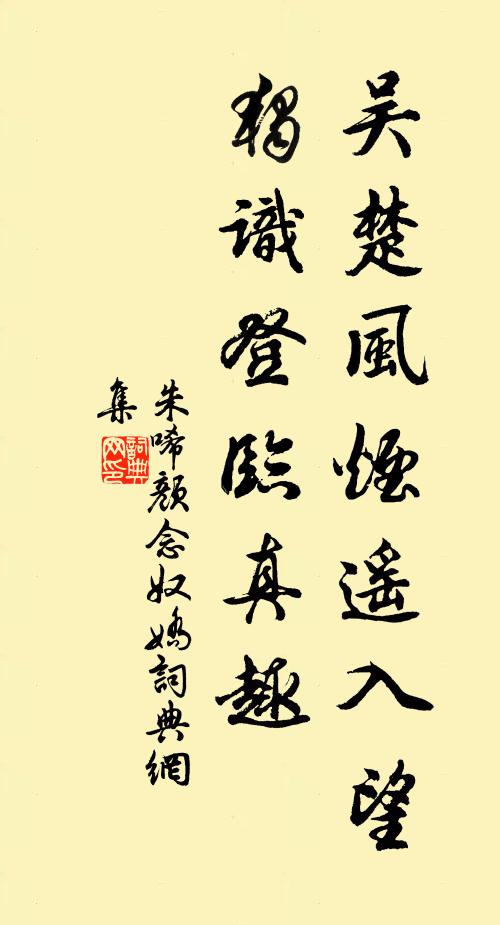 吴楚風煙遥入望
獨識登臨真趣
朱唏顔念奴嬌詞典網
集
詞典網印